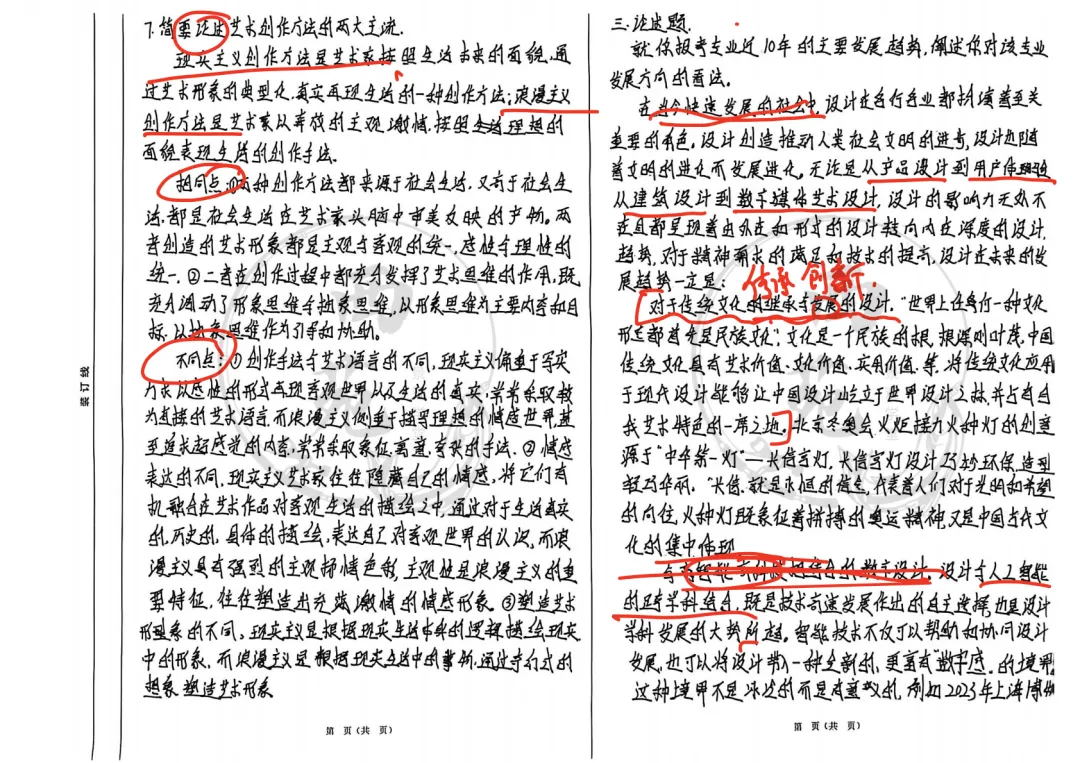 7. 简要论述艺术创作方法的两大主流.
现实主义创作方法是艺术家按照生活本来的面貌,通
过艺术形象的典型化,真实再现生活的一种创作方法;浪漫主义
创作方法是艺术家从奔放的主观激情,按照生活理想的
面貌表现生活的创作手法.
相同点:①两种创作方法都来源于社会生活,又高于社会生
活,都是社会生活在艺术家头脑中审美反映的产物。两
者创造的艺术形象都是主观与客观的统一、感性与理性的
统一.②二者在创作过程中都充分发挥了艺术思维的作用,既
充分调动了形象思维与抽象思维,以形象思维为主要内容和目
标,以抽象思维作为引导和协助。
不同点:①创作手法与艺术语言的不同,现实主义偏重于写实
力求以感性的形式再现客观世界以及生活的真实,常常采取较
为直接的艺术语言,而浪漫主义侧重于描写理想的情感世界,甚
至追求超感光的内容,常常采取象征、寓意、夸张的手法.②情感
表达的不同,现实主义艺术家往往隐藏自己的情感,将它们有
机融合在艺术作品对客观生活的描绘之中,通过对于生活真实
的,历史的,具体的描绘,表达自己对客观世界的认识,而浪
漫主义具有强烈的主观抒情色彩,主观性是浪漫主义的重
要特征,往往塑造出充满激情的情感形象。③塑造艺术
形象的不同,现实主义是根据现实生活中的逻辑描绘现实
中的形象,而浪漫主义是根据现实生活中的事物,通过奇幻式的
想象塑造艺术形象
第 页(共 页)
装订线
三.论述题.
就你报考专业近10年的主要发展趋势,阐述你对该专业
发展方向的看法。
在当今快速发展的社会中,设计在各行各业都扮演着至关
重要的角色,设计创造推动人类社会文明的进步,设计也随
着文明的进化而发展进化。无论是从产品设计到用户体验
从建筑设计到数字媒体艺术设计,设计的影响力无处不
在且都呈现着由外在如形式的设计转向内在深度的设计
趋势,对于精神需求的满足和技术的提高,设计在未来的发
展趋势一定是:
传承 创新.
对于传统文化的继承与发展的设计."世界上任何一种文化
形态都首先是民族文化",文化是一个民族的根,根深则叶茂,中国
传统文化具有艺术价值、文化价值、实用价值、等,将传统文化应用
于现代设计能够让中国设计屹立于世界设计之林,并占有自
我艺术特色的一席之地。北京冬奥会火炬接力火种灯的创意
源于"中华第一灯"—长信宫灯,长信宫灯设计巧妙环保,造型
轻巧华丽."长信"就是永恒的信念,代表着人们对于光明和希望
的向往,火种灯既象征着拼搏的奥运精神,又是中国古代文
化的集中体现
设计与人工智能
的跨学科结合,既是技术高速发展作出的自主选择,也是设计
学科发展的大势所趋。智能技术不仅可以帮助和协同设计
发展,也可以将设计带入一种全新的,更富有"数字感"的境界,
这种境界不是冰冷的而是有意义的,例如2023年上海博物
第 页(共 页)